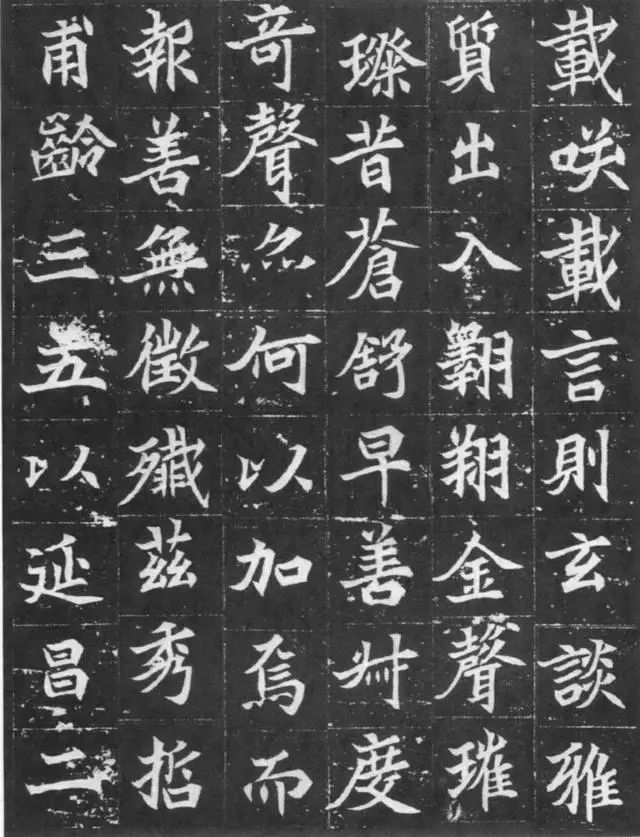 載咲載言則玄談雅
質出入翱翔金聲璀
璨昔蒼舒早善舟度
竒聲亦何以加焉而
報善無徵殲茲秀哲
甫齡三五以延昌二